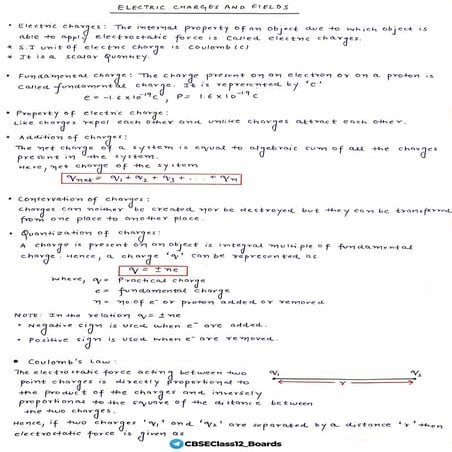 ELECTRIC CHARGES AND FIELDS
• Electric charges: The internal property of an object due to which object is
able to apply electrostatic force is called electric charges.
* S.I unit of electric charge is Coulomb (C)
* It is a scalar quantity.
• Fundamental charge: The charge present on an electron or on a proton is
called fundamental charge. It is represented by 'e'
e = -1.6 x 10⁻¹⁹ C, P = 1.6 x 10⁻¹⁹ C
• Property of electric charge:
Like charges repel each other and unlike charges attract each other.
• Addition of charges:
The net charge of a system is equal to algebraic sum of all the charges
present in the system.
Here, net charge of the system
qnet = q₁ + q₂ + q₃ + . . . + qn
• Conservation of charges:
Charges can neither be created nor be destroyed but they can be transferred
from one place to another place.
• Quantization of charges:
A charge is present on an object is integral multiple of fundamental
charge. Hence, a charge 'q' can be represented as
q = ±ne
where, q = Practical charge
e = fundamental charge
n = no. of e⁻ or proton added or removed
NOTE: In the relation q = ±ne
• Negative sign is used when e⁻ are added.
• Positive sign is used when e⁻ are removed.
• Coulomb's Law:
The electrostatic force acting between two
point charges is directly proportional to
the product of the charges and inversely
proportional to the square of the distance between
the two charges.
q₁ r q₂
Hence, if two charges 'q₁' and 'q₂' are separated by a distance 'r' then
electrostatic force is given as
CBSEClass12_Boards